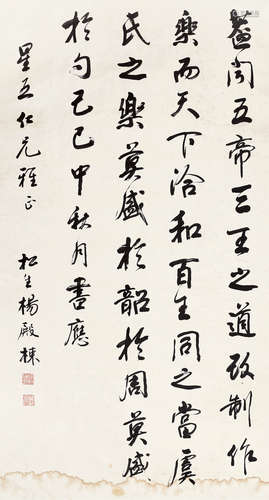 蓋聞五帝三王之道改制作
樂而天下洽和百王同之當虞
氏之樂莫盛於韶於周莫盛
於勺己巳中秋月書應
星五仁兄雅正
松生楊殿棟